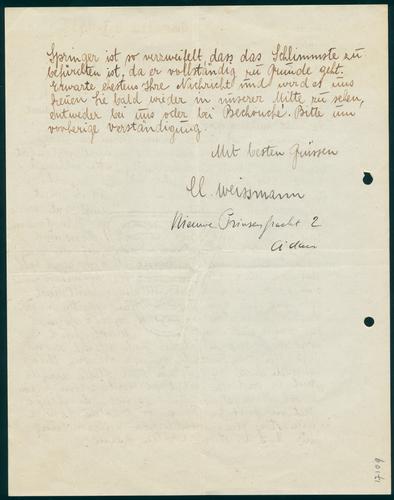 Springer ist so verzweifelt, dass das Schlimmste zu
befürchten ist, da er vollständig zu Grunde geht.
Erwarte ehestens Ihre Nachricht und wird es uns
freuen Sie bald wieder in unserer Mitte zu sehen,
entweder bei uns oder bei Bechouche. Bitte um
vorherige Verständigung.
Mit besten Grüssen
M. Weissmann
Nieuwe Prinsengracht 2
A'dam
17109